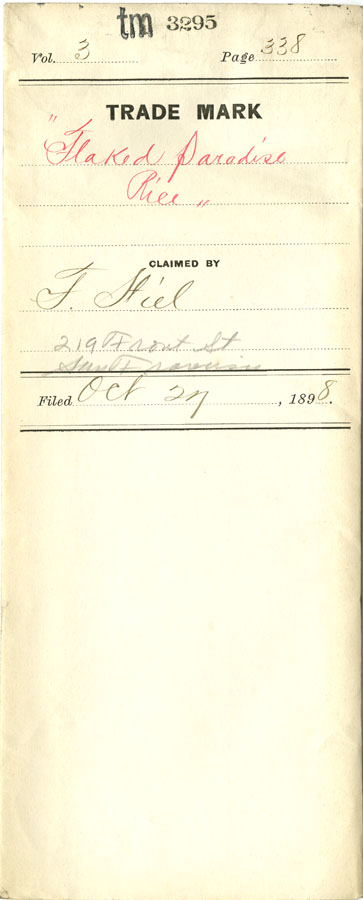 tm 3295
Vol. 3 Page 338
TRADE MARK
"Flaked Paradise
Rice"
CLAIMED BY
F. Hiel
219 Front St
San Francisco
Filed Oct 27, 1898.